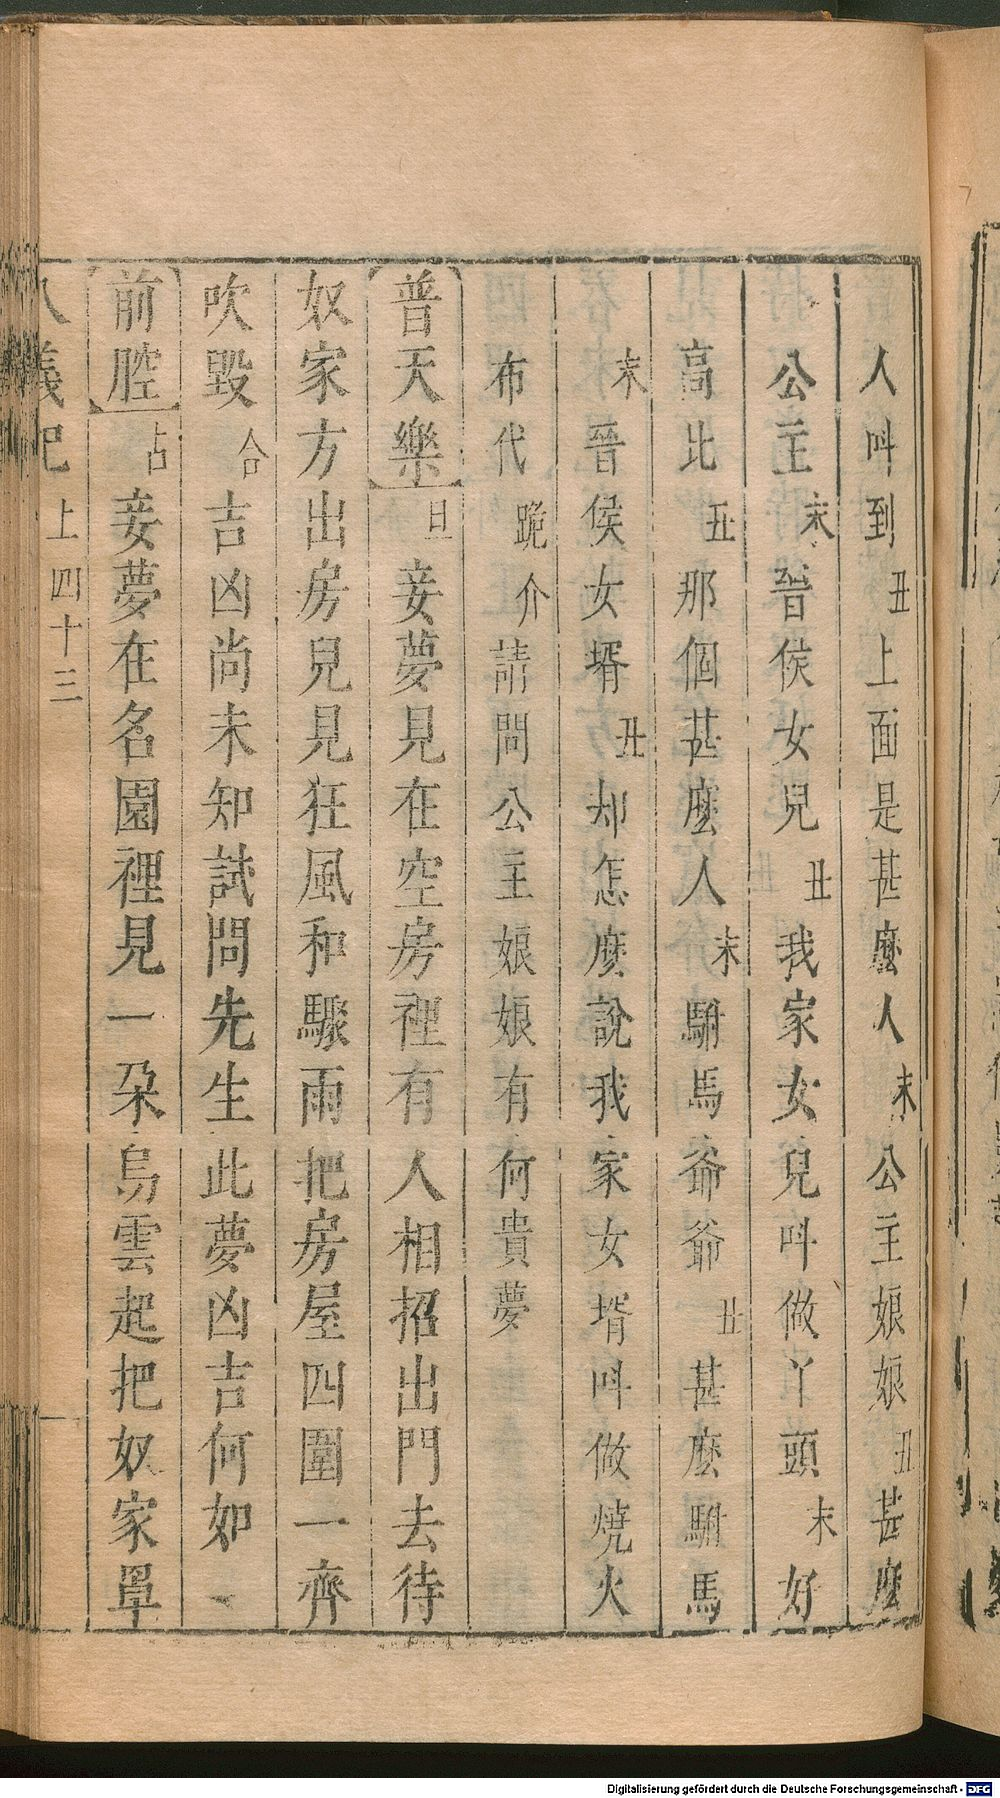 人呌到丑上面是甚麽人末公主娘娘丑甚麽
公主末晉侯女兒丑我家女兒呌做丫頭末好
高比丑那個甚麽人末駙馬爺爺丑甚麽駙馬
末晉侯女壻丑却怎麽說我家女壻呌做燒火
布代跪介請問公主娘娘有何貴夢
普天樂旦妾夢見在空房裡有人相招出門去待
奴家方出房見見狂風和驟雨把房屋四圍一齊
吹毀合吉凶尚未知試問先生此夢凶吉何如
前腔占妾夢在名園裡見一朶烏雲起把奴家罩
八義記 上 四十三
Digitalisierung gefördert durch die Deutsche Forschungsgemeinschaft - DFG